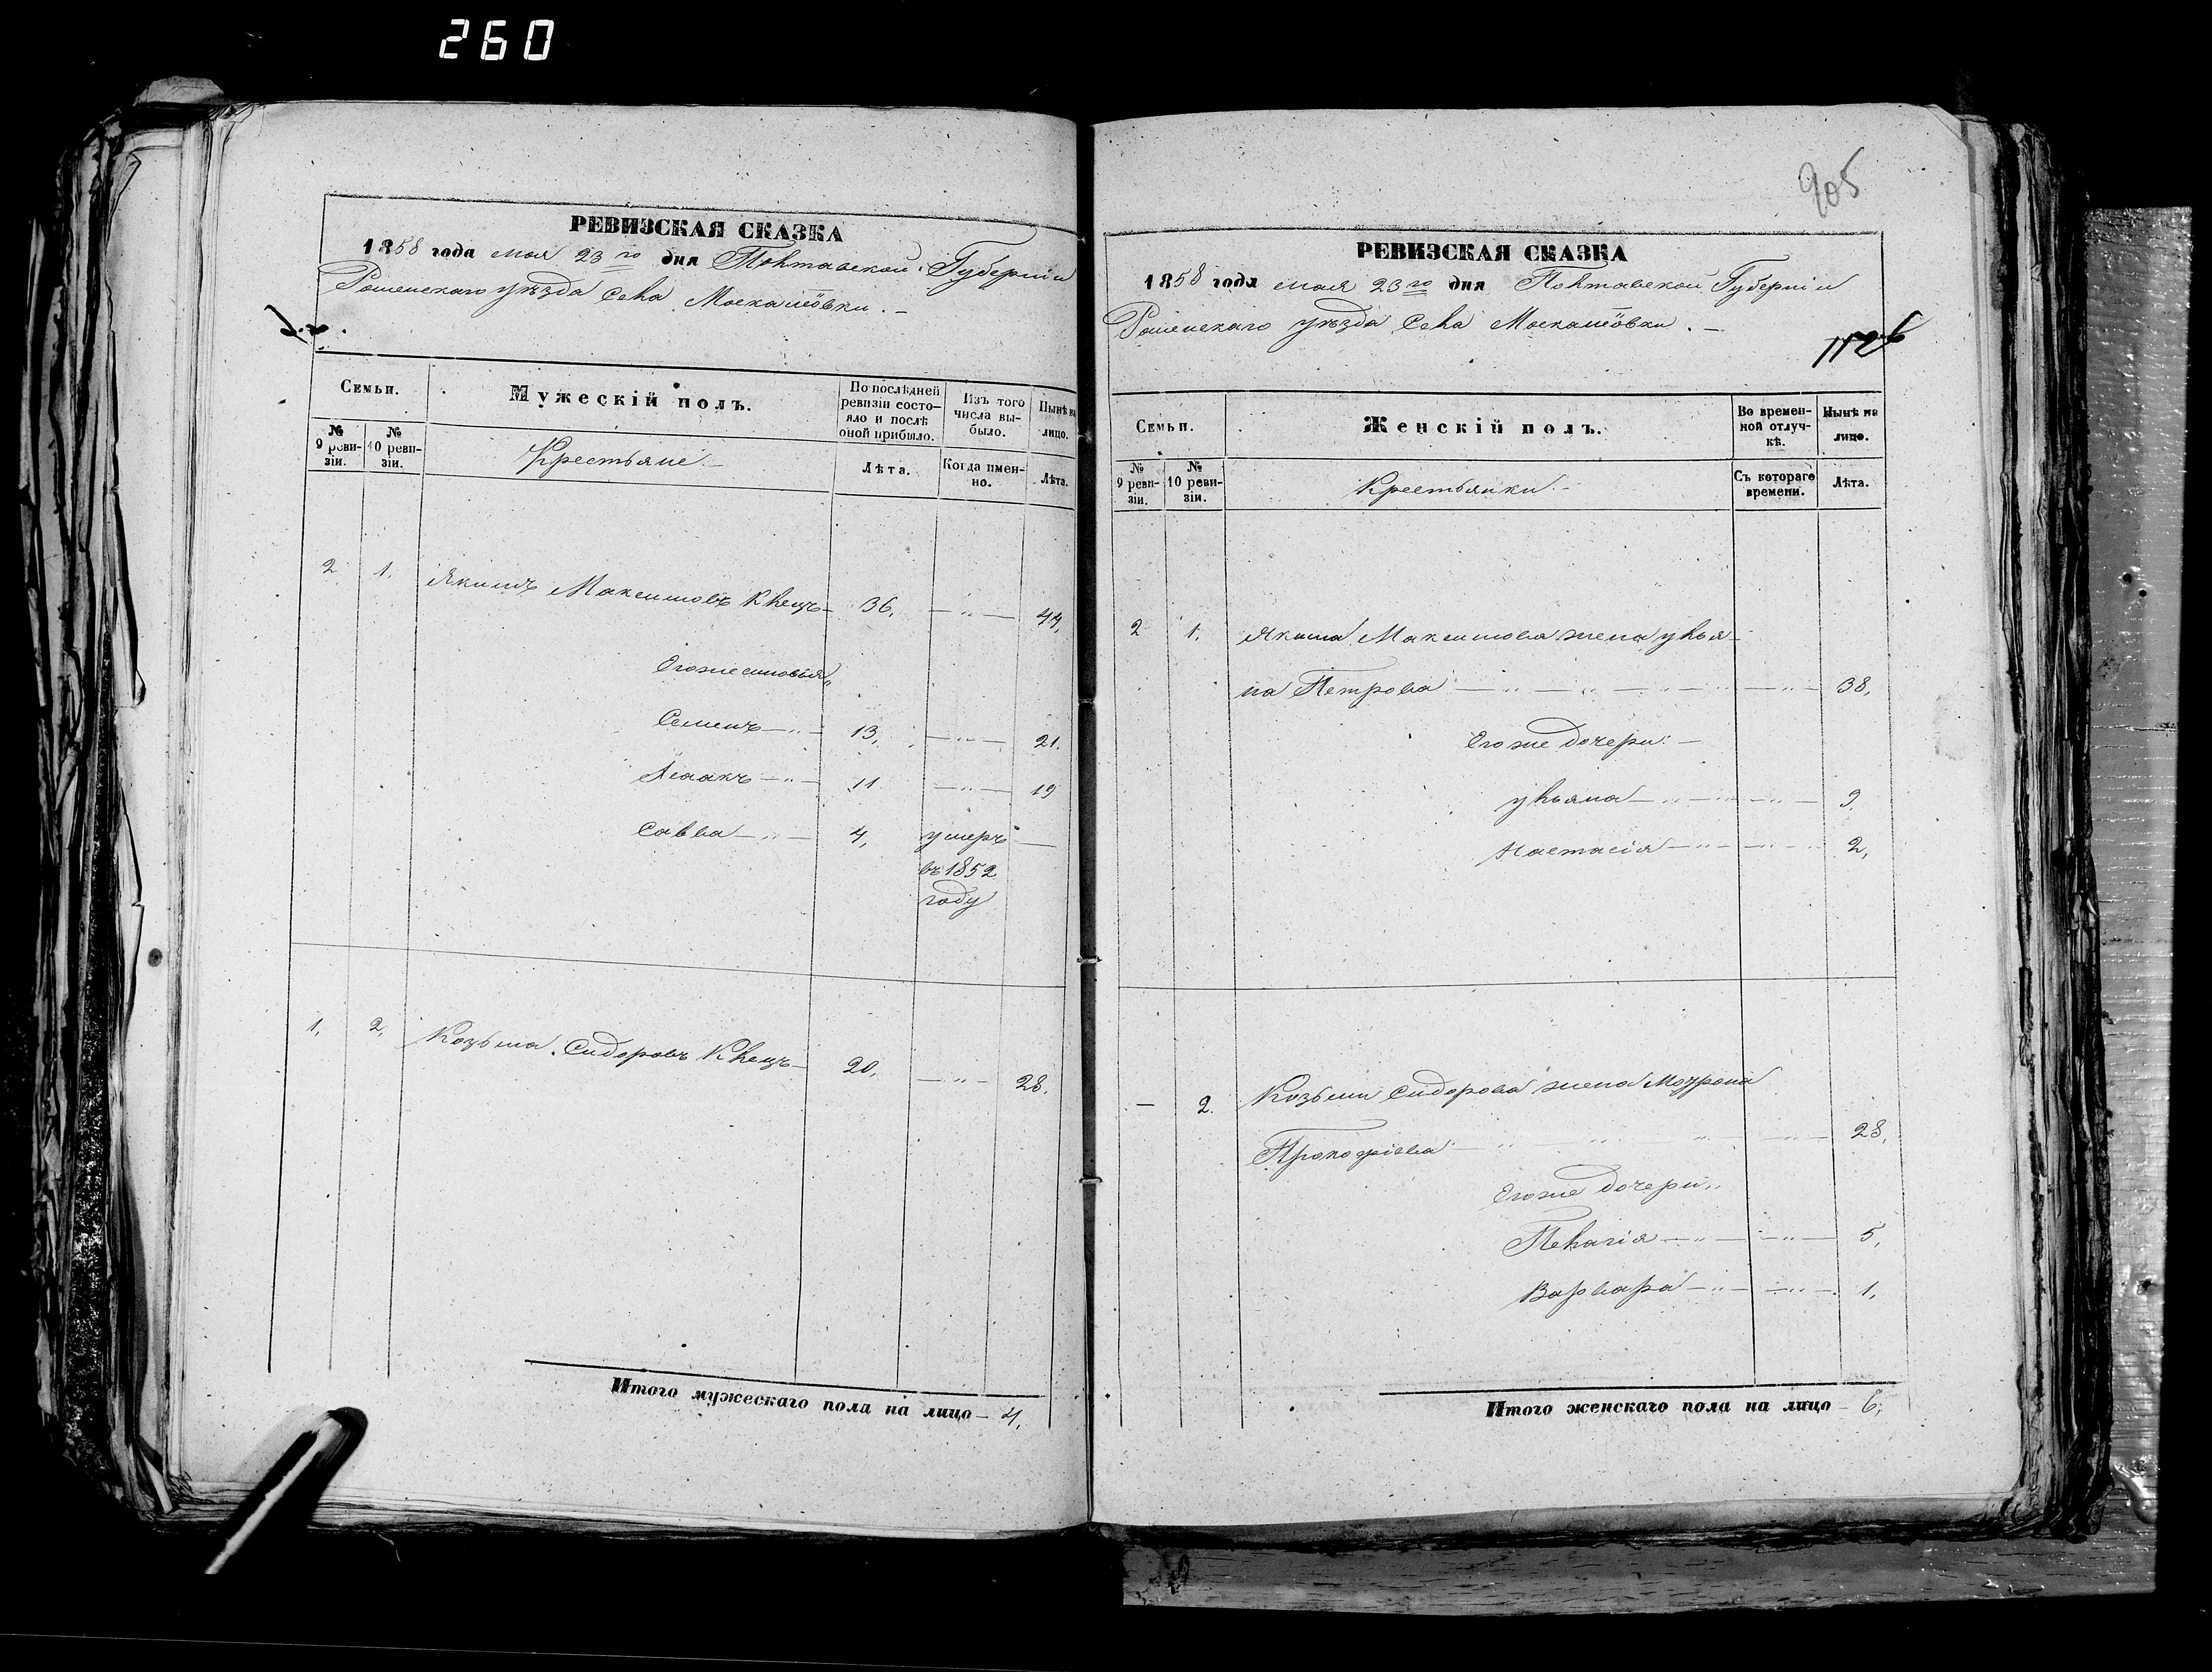 260
РЕВИЗСКАЯ СКАЗКА
1858 года мая 23го дня Полтавской Губерніи
Роменскаго уѣзда Села Москалёвки. —
Семьи.
Мужескій полъ.
По послѣдней ревизіи состояло и послѣ оной прибыло.
Изъ того числа выбыло.
Нынѣ на лицо.
№ 9 ревизіи.
№ 10 ревизіи.
Крестьяне
Лѣта.
Когда именно.
Лѣта.
2 1. Якимъ Максимовъ Клецъ 36, — " — 44,
Егоже сыновья
Семенъ — " — 13, — " — 21.
Исаакъ — " — 11 — " — 19
Савва — " — 4, умеръ —
въ 1852
году
1, 2, Козьма Сидоровъ Клецъ 20, — " — 28,
Итого мужескаго пола на лицо — 4,
905
РЕВИЗСКАЯ СКАЗКА
1858 года мая 23го дня Полтавской Губерніи
Роменскаго уѣзда Села Москалёвки. —
Семьи.
Женскій полъ.
Во временной отлучкѣ.
Нынѣ на лицо.
№ 9 ревизіи.
№ 10 ревизіи.
Крестьянки
Съ котораго времени.
Лѣта.
2 1. Якима Максимова жена Улья-
на Петрова — " — " — 38,
Егоже дочери: —
Ульяна — " — " — 9,
Настасія — " — " — 2,
— 2. Козьмы Сидорова жена Мотрона
Прокофіева — " — " — 28,
Егоже дочери
Пелагія — " — " — 5,
Варвара — " — " — 1,
Итого женскаго пола на лицо — 6,